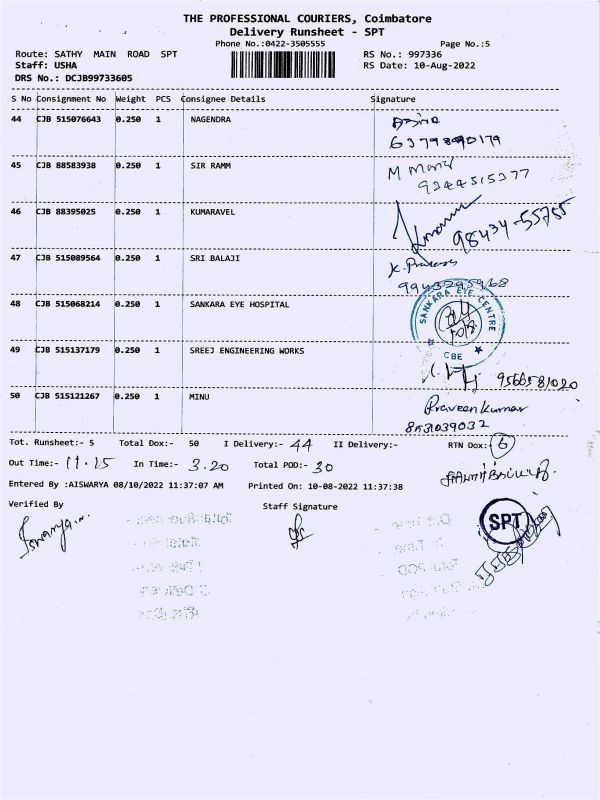 THE PROFESSIONAL COURIERS, Coimbatore
Delivery Runsheet - SPT
Phone No.:0422-3505555 Page No.:5
Route: SATHY MAIN ROAD SPT RS No.: 997336
Staff: USHA RS Date: 10-Aug-2022
DRS No.: DCJB99733605
S No Consignment No Weight PCS Consignee Details Signature
44 CJB 515076643 0.250 1 NAGENDRA
45 CJB 88583938 0.250 1 SIR RAMM M Mani
9244515377
46 CJB 88395025 0.250 1 KUMARAVEL
98434-55755
47 CJB 515089564 0.250 1 SRI BALAJI K. Prakash
48 CJB 515068214 0.250 1 SANKARA EYE HOSPITAL SANKARA EYE CENTRE
CBE
49 CJB 515137179 0.250 1 SREEJ ENGINEERING WORKS
9566581020
50 CJB 515121267 0.250 1 MINU Praveen kumar
Tot. Runsheet:- 5 Total Dox:- 50 I Delivery:- 44 II Delivery:- RTN Dox: 6
Out Time:- 11.15 In Time:- 3.20 Total POD:- 30
Entered By :AISWARYA 08/10/2022 11:37:07 AM Printed On: 10-08-2022 11:37:38
Verified By Staff Signature
SPT